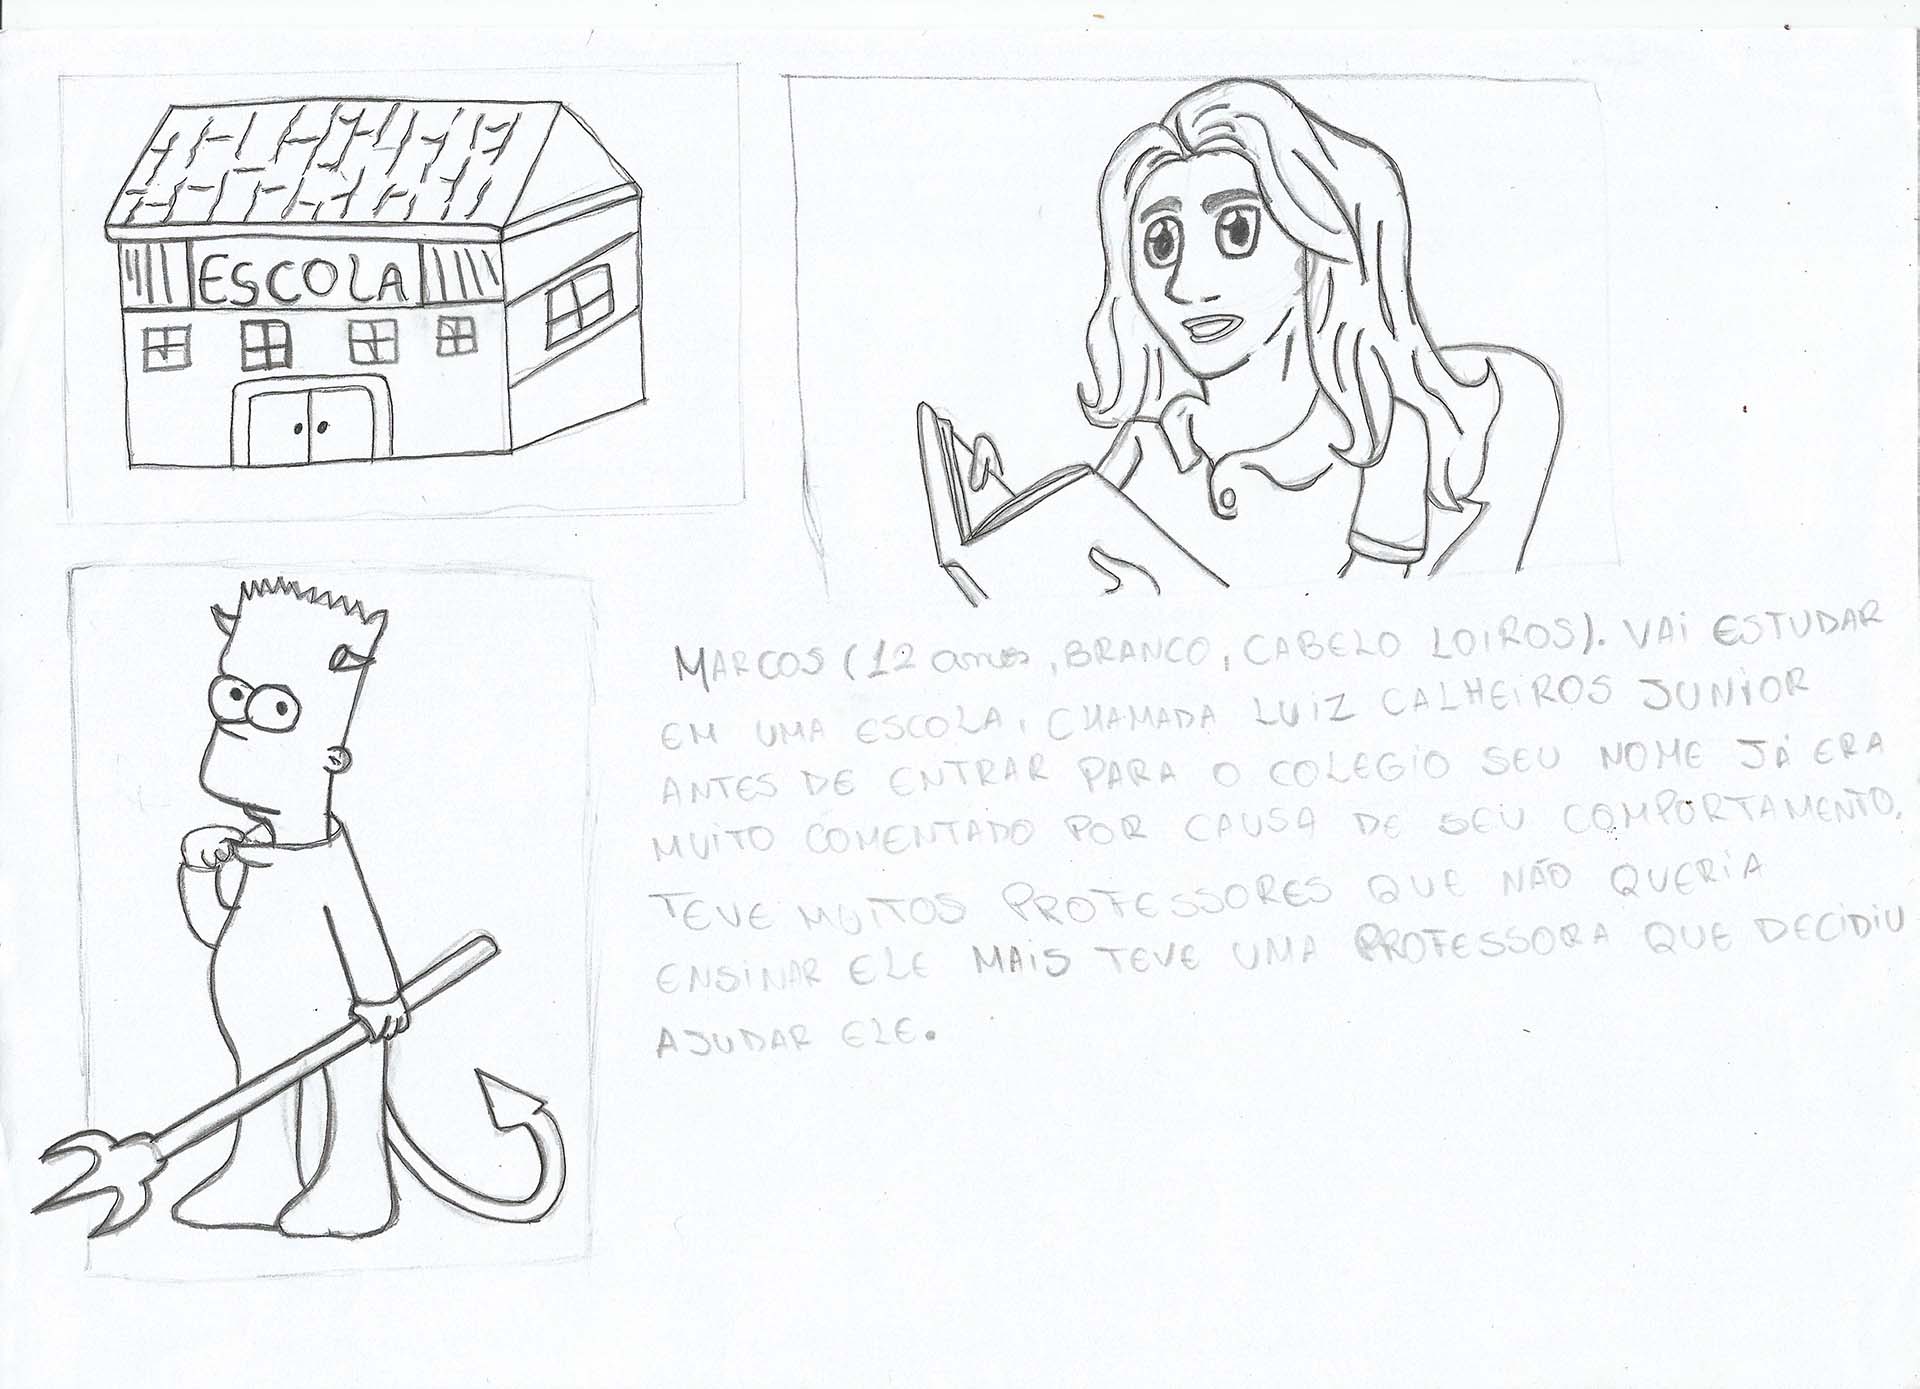 ESCOLA
MARCOS (12 anos, BRANCO, CABELO LOIROS). VAI ESTUDAR
EM UMA ESCOLA, CHAMADA LUIZ CALHEIROS JUNIOR
ANTES DE ENTRAR PARA O COLEGIO SEU NOME JÁ ERA
MUITO COMENTADO POR CAUSA DE SEU COMPORTAMENTO.
TEVE MUITOS PROFESSORES QUE NÃO QUERIA
ENSINAR ELE MAIS TEVE UMA PROFESSORA QUE DECIDIU
AJUDAR ELE.